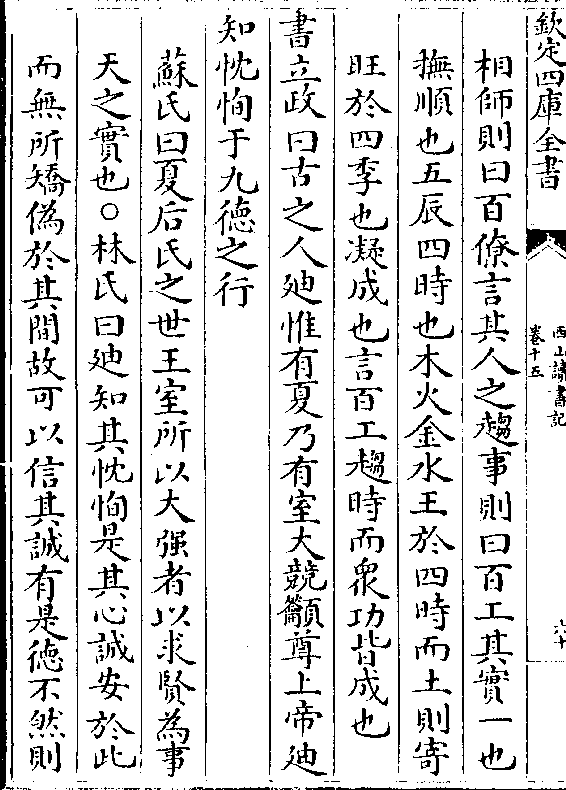 欽定四庫全書
西山讀書記
卷十五
六十
相師則曰百僚言其人之趨事則曰百工其實一也
撫順也五辰四時也木火金水王於四時而土則寄
旺於四季也凝成也言百工趨時而衆功皆成也
書立政曰古之人廸惟有夏乃有室大競籲尊上帝廸
知忱恂于九德之行
蘇氏曰夏后氏之世王室所以大强者以求賢為事
天之實也○林氏曰廸知其忱恂是其心誠安於此
而無所矯偽於其間故可以信其誠有是德不然則